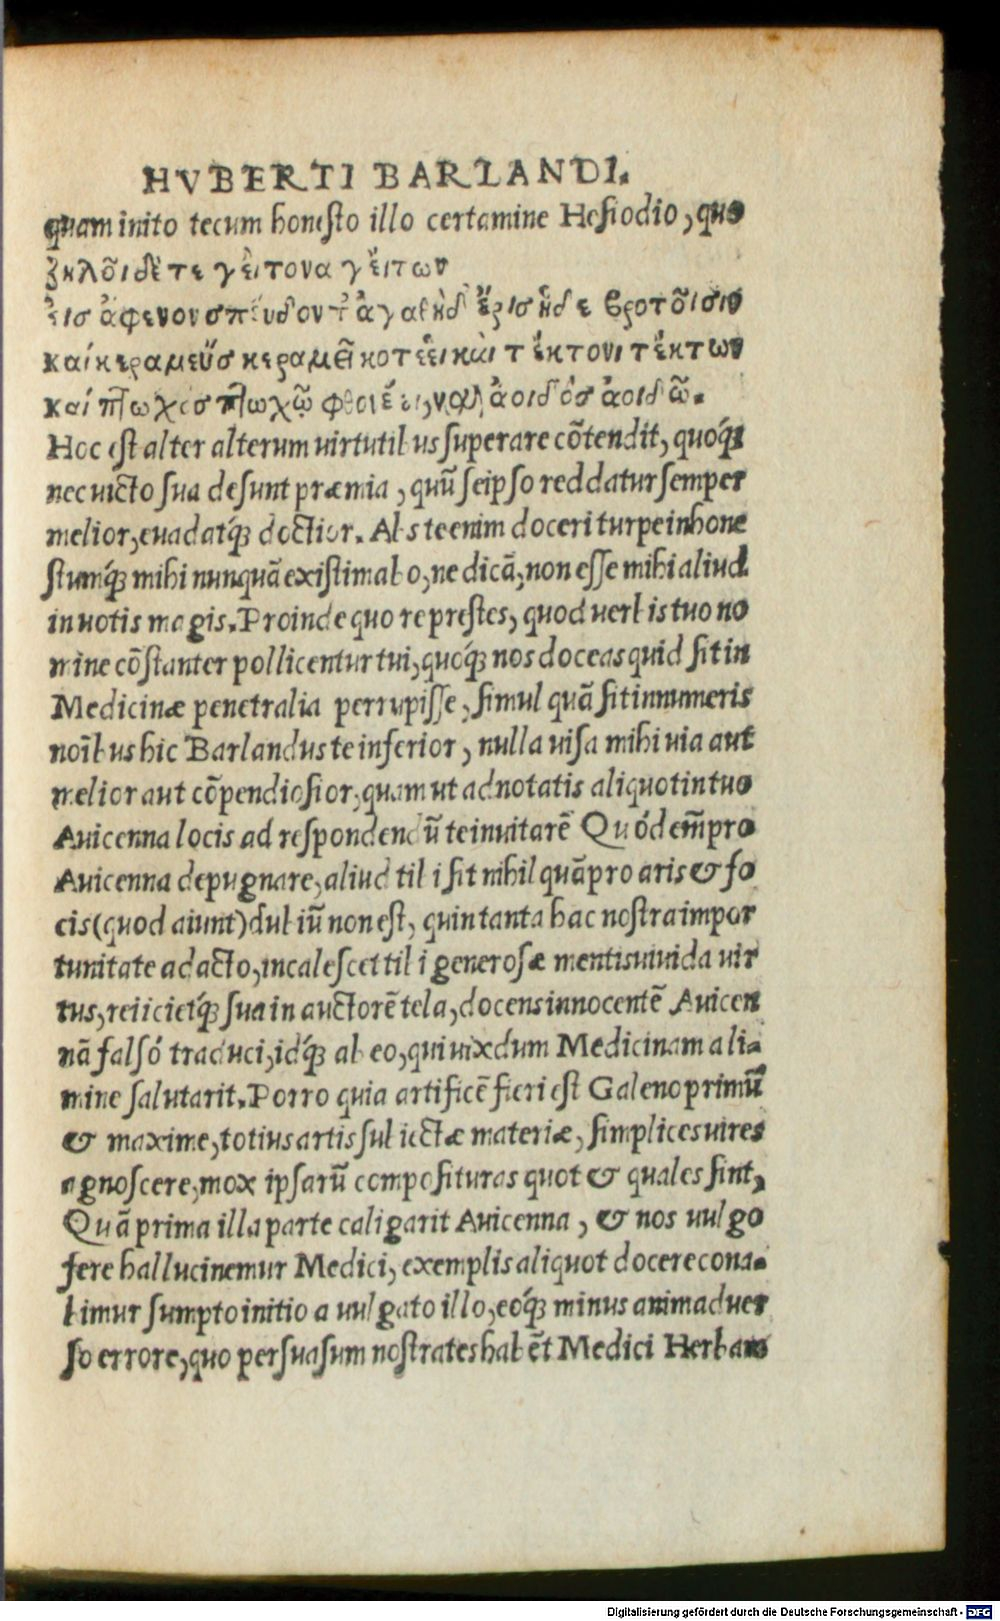 HVBERTI BARLANDI.
quam inito tecum honesto illo certamine Hesiodio, quo
ζηλοῖ δέ τε γείτονα γείτων
εἰσ ἄφενον σπεύδοντ' ἀγαθὴ δ' ἔρισ ἥδε βροτοῖσιν
καί κεραμεῦσ κεραμεῖ κοτέει καὶ τέκτονι τέκτων
καί πτωχὸσ πτωχῷ φθονέει, καὶ ἀοιδὸσ ἀοιδῷ.
Hoc est alter alterum uirtutibus superare cõtendit, quoq́ꝫ
nec uicto sua desunt præmia, quũ seipso reddatur semper
melior, euadatq́ꝫ doctior. Abs te enim doceri turpe inhone
stumq́ꝫ mihi nunquã existimabo, ne dicã, non esse mihi aliud
in uotis magis. Proinde quo re prestes, quod uerbis tuo no
mine cõstanter pollicentur tui, quoq́ꝫ nos doceas quid sit in
Medicinæ penetralia perrupisse, simul quã sit innumeris
noĩbus hic Barlandus te inferior, nulla uisa mihi uia aut
melior aut cõpendiosior, quam ut adnotatis aliquot in tuo
Auicenna locis ad respondendũ te inuitarẽ Quód em̃ pro
Auicenna depugnare, aliud tibi sit nihil quã pro aris & fo
cis (quod aiunt) dubiũ non est, quin tanta hac nostra impor
tunitate adacto, incalescet tibi generosæ mentis uiuida uir
tus, reiicietq́ꝫ sua in auctorẽ tela, docens innocentẽ Auicen
nã falsó traduci, idq́ꝫ ab eo, qui uixdum Medicinam a li-
mine salutarit. Porro quia artificẽ fieri est Galeno primũ
& maxime, totius artis subiectæ materiæ, simplices uires
agnoscere, mox ipsarũ composituras quot & quales sint,
Quã prima illa parte caligarit Auicenna, & nos uulgo
fere hallucinemur Medici, exemplis aliquot docere cona-
bimur sumpto initio a uulgato illo, eoq́ꝫ minus animaduer
so errore, quo persuasum nostrates habẽt Medici Herbam
Digitalisierung gefördert durch die Deutsche Forschungsgemeinschaft - DFG